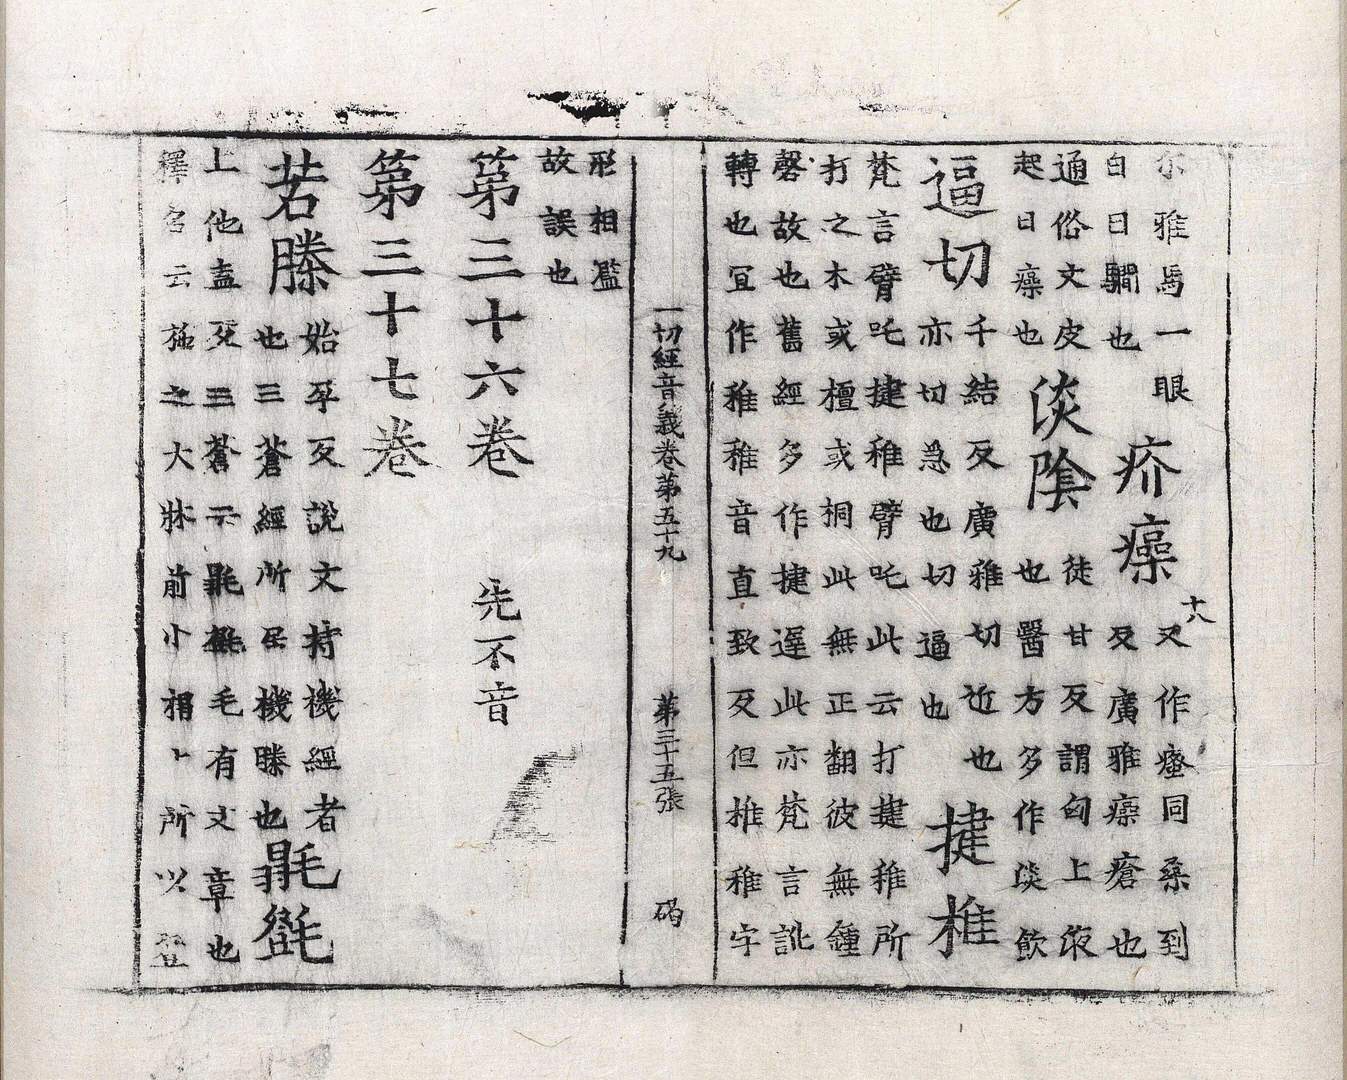 尒雅馬一眼
白曰瞷也
疥瘙
十八
又作瘙同桒到
反廣雅瘙瘡也
通俗文皮
起曰瘙也
淡陰
徒甘反謂匈上液
也醫方多作淡飲
逼切
千結反廣雅切近也
亦切切急也切逼也
揵椎
梵言臂吒揵稚臂吒此云打揵稚所
打之木或檀或桐此無正翻彼無鍾
磬故也舊經多作揵遟此亦梵言訛
轉也冝作稚稚音直致反但椎稚字
一切經音義卷第五十九
第三十五張
碣
形相濫
故誤也
第三十六卷
先不音
第三十七卷
若縢
始孕反說文持機經者
也三蒼經所居機縢也
毾㲪
上他盍反三蒼云毾㲪毛有文章也
釋名云施之大牀前小榻上所以登